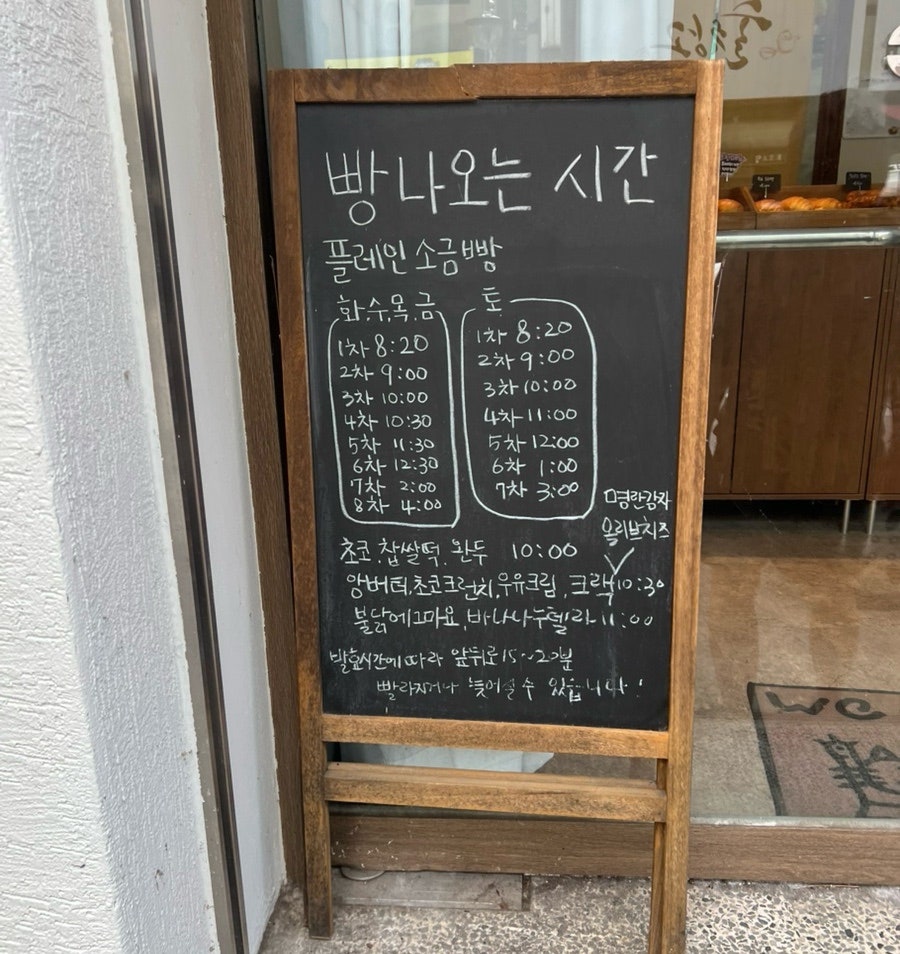 빵 나오는 시간
플레인 소금빵
화,수,목,금
1차 8:20
2차 9:00
3차 10:00
4차 10:30
5차 11:30
6차 12:30
7차 2:00
8차 4:00
토
1차 8:20
2차 9:00
3차 10:00
4차 11:00
5차 12:00
6차 1:00
7차 3:00
초코,찹쌀떡,완두 10:00
명란감자
올리브치즈
앙버터,초코크런치,우유크림,크랙 10:30
불닭에그마요,바나나누텔라 11:00
발효시간에 따라 앞뒤로 15~20분
빨라지거나 늦어질 수 있습니다!